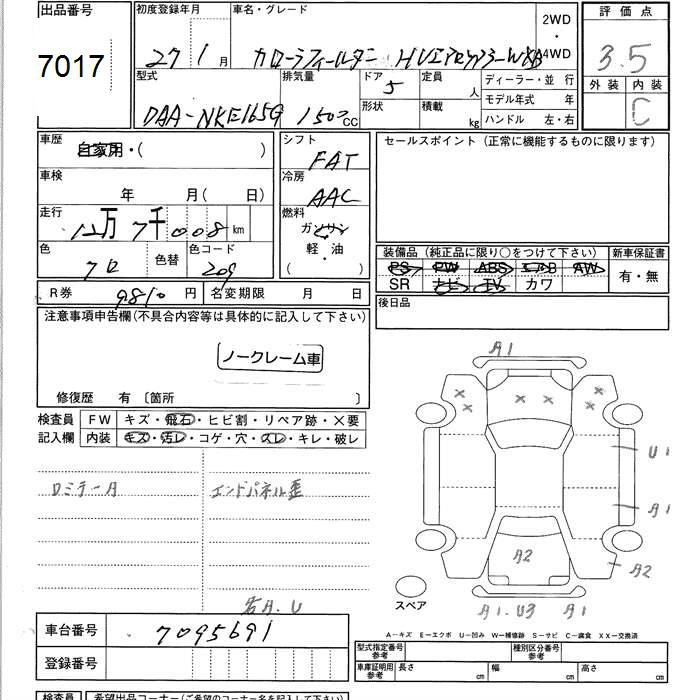 出品番号 初度登録年月 車名・グレード 2WD 評価点
7017 27 1月 カローラフィールダー 4WD 3.5
外装 内装
型式 排気量 ドア 定員 ディーラー・並行
DAA-NKE165G 1500cc 5 人 モデル年式 年 C
形状 積載 kg ハンドル 左・右
車歴 自家用・( ) シフト FAT セールスポイント (正常に機能するものに限ります)
車検 年 月( 日) 冷房 AAC
走行 万7千008km 燃料 ガソリン
軽・油
( )
色 クロ 色替 色コード 209 装備品 (純正品に限り○をつけて下さい) 新車保証書
PS PW ABS エアB AW 有・無
SR ナビ TV カワ
R券 9810円 名変期限 月 日 後日品
注意事項申告欄(不具合内容等は具体的に記入して下さい)
ノークレーム車
修復歴 有 〔箇所 〕
検査員 FW キズ・飛石・ヒビ割・リペア跡・×要
記入欄 内装 キズ・汚レ・コゲ・穴・スレ・キレ・破レ
エンドパネル歪
A1
U1
A1
A2
A2
A1.U3 A1
スペア
車台番号 7095691
A-キズ E-エクボ U-凹み W-補修跡 S-サビ C-腐食 XX-交換済
登録番号
型式指定番号 参考 種別区分番号 参考
車庫証明用 参考 長さ cm 幅 cm 高さ cm
検査員 希望出品コーナー(ご希望のコーナー名を記入して下さい)